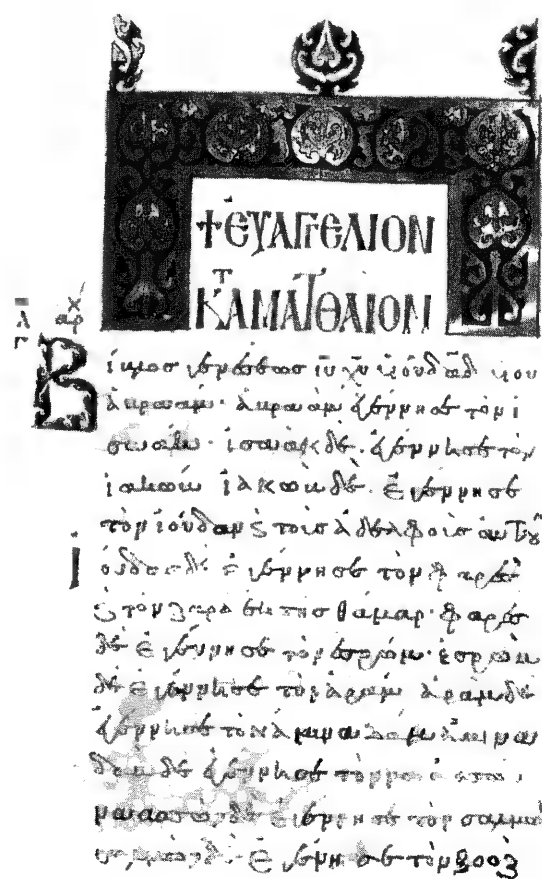 + ΕΥΑΓΓΕΛΙΟΝ
ΚΑΤΑ ΜΑΤΘΑΙΟΝ
Βίβλος γενέσεως ιυ χυ υιου δαδ υιου
ἀβραάμ· ἀβραὰμ ἐγέννησε τὸν ἰ
σαάκ· ἰσαὰκ δὲ ἐγέννησε τὸν
ἰακώβ· ἰακὼβ δὲ ἐγέννησε
τὸν ἰούδαν ϗ τοὺσ ἀδελφοὺσ αὐτοῦ
ἰούδασ δὲ ἐγέννησε τὸν φαρὲσ
ϗ τὸν ζαρὰ ἐκ τῆσ θάμαρ· φαρὲσ
δὲ ἐγέννησε τὸν ἐσρώμ· ἐσρὼμ
δὲ ἐγέννησε τὸν ἀράμ· ἀρὰμ δὲ
ἐγέννησε τὸν ἀμιναδάμ· ἀμινα
δὰμ δὲ ἐγέννησε τὸν ναασσών·
ναασσὼν δὲ ἐγέννησε τὸν σαλμών
σαλμὼν δὲ ἐγέννησε τὸν βοὸζ